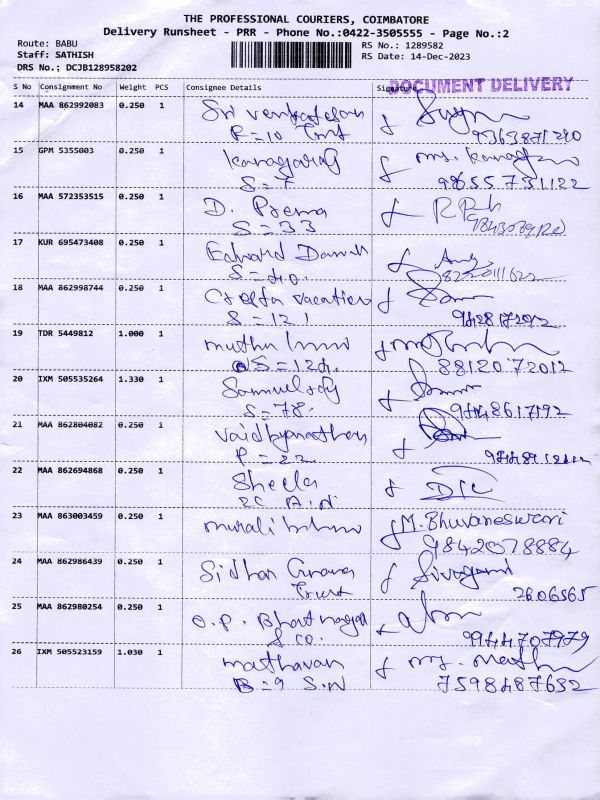 THE PROFESSIONAL COURIERS, COIMBATORE
Delivery Runsheet - PRR - Phone No.:0422-3505555 - Page No.:2
Route: BABU
Staff: SATHISH
DRS No.; DCJB128958202
RS No.: 1289582
RS Date: 14-Dec-2023
DOCUMENT DELIVERY
S No Consignment No Weight PCS Consignee Details Signature
14 MAA 862992083 0.250 1 Sri
9363871210
15 GPM 5355003 0.250 1 Kanagaraj ms.
S=7 9655731122
16 MAA 572353515 0.250 1 D. Prema
S=33
17 KUR 695473408 0.250 1 Edward
S=40. 8220111622
18 MAA 862998744 0.250 1
S=121 9428172
19 TDR 5449812 1.000 1 muthu
S=124. 8812072012
20 IXM 505535264 1.330 1
S=78. 9448617192
21 MAA 862804082 0.250 1 Vaidhyanathan
P=22
22 MAA 862694868 0.250 1 Sheela
23 MAA 863003459 0.250 1 murali M. Bhuvaneswari
9842078884
24 MAA 862986439 0.250 1 Sidhar Sivagami
Trust 2606565
25 MAA 862980254 0.250 1 O.P. Bhatnagar
& Co. 9944707979
26 IXM 505523159 1.030 1 mathavan
B=9 S.N 7598487632